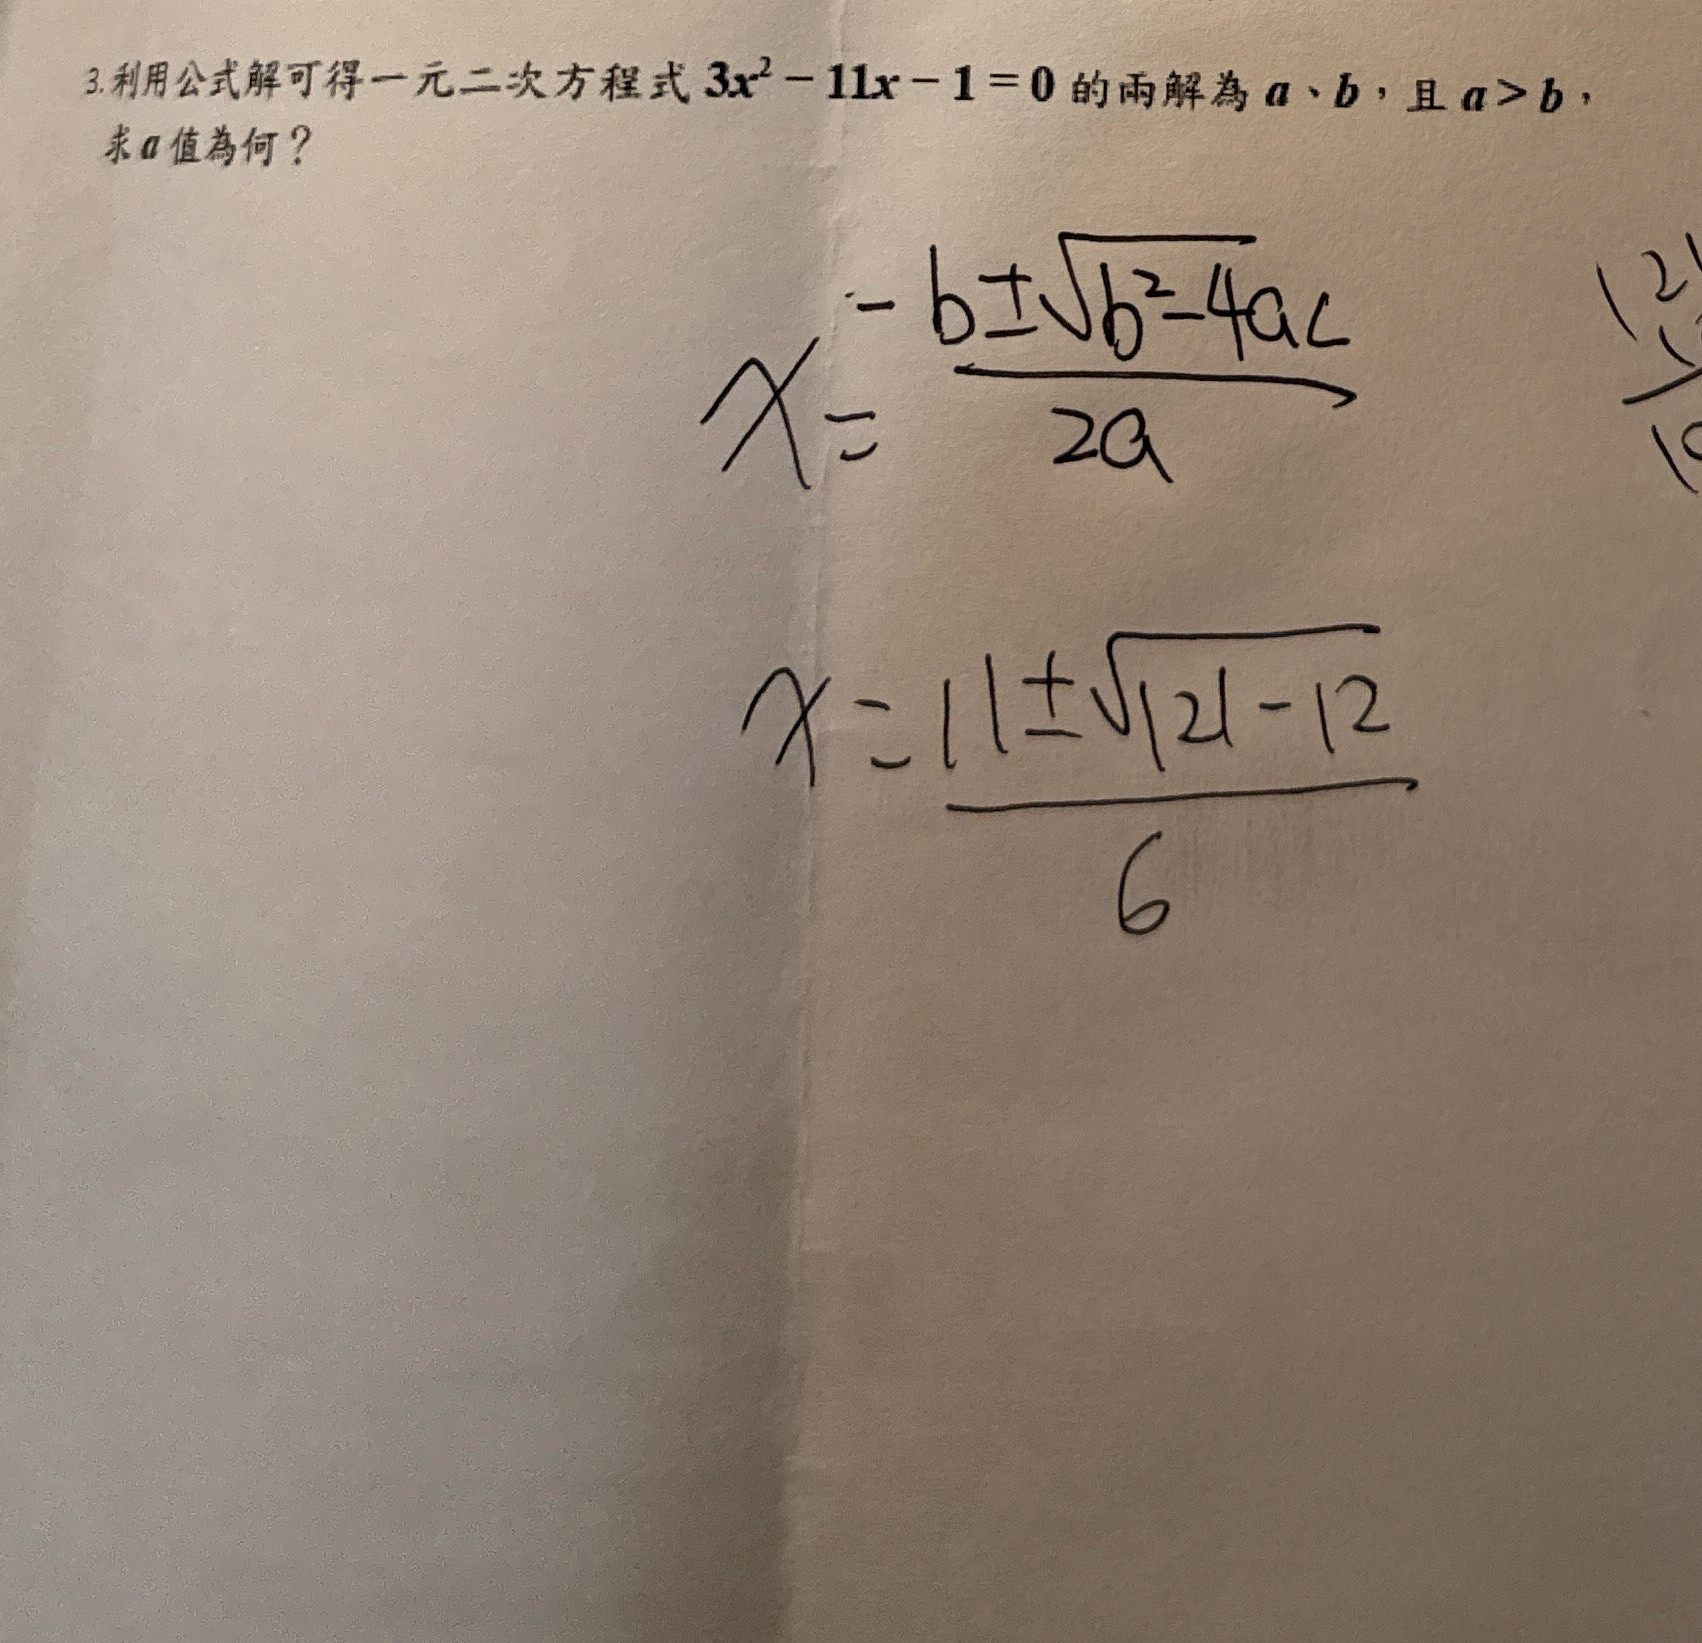 3.利用公式解可得一元二次方程式 3x² − 11x − 1 = 0 的兩解為 a、b，且 a > b，
求 a 值為何？
x = -b±√b²-4ac / 2a
x = 11±√121-12 / 6